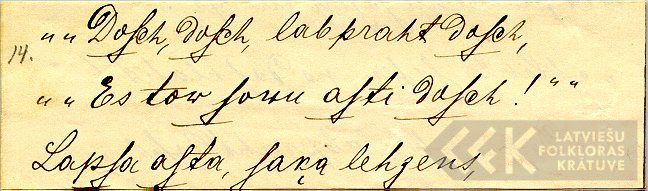 14.
„„Dosch, dosch, labpraht dosch,
„„Es tow sowu asti dosch!““
Lapsa asta, saka lehzens,
LATVIEŠU
FOLKLORAS
KRĀTUVE